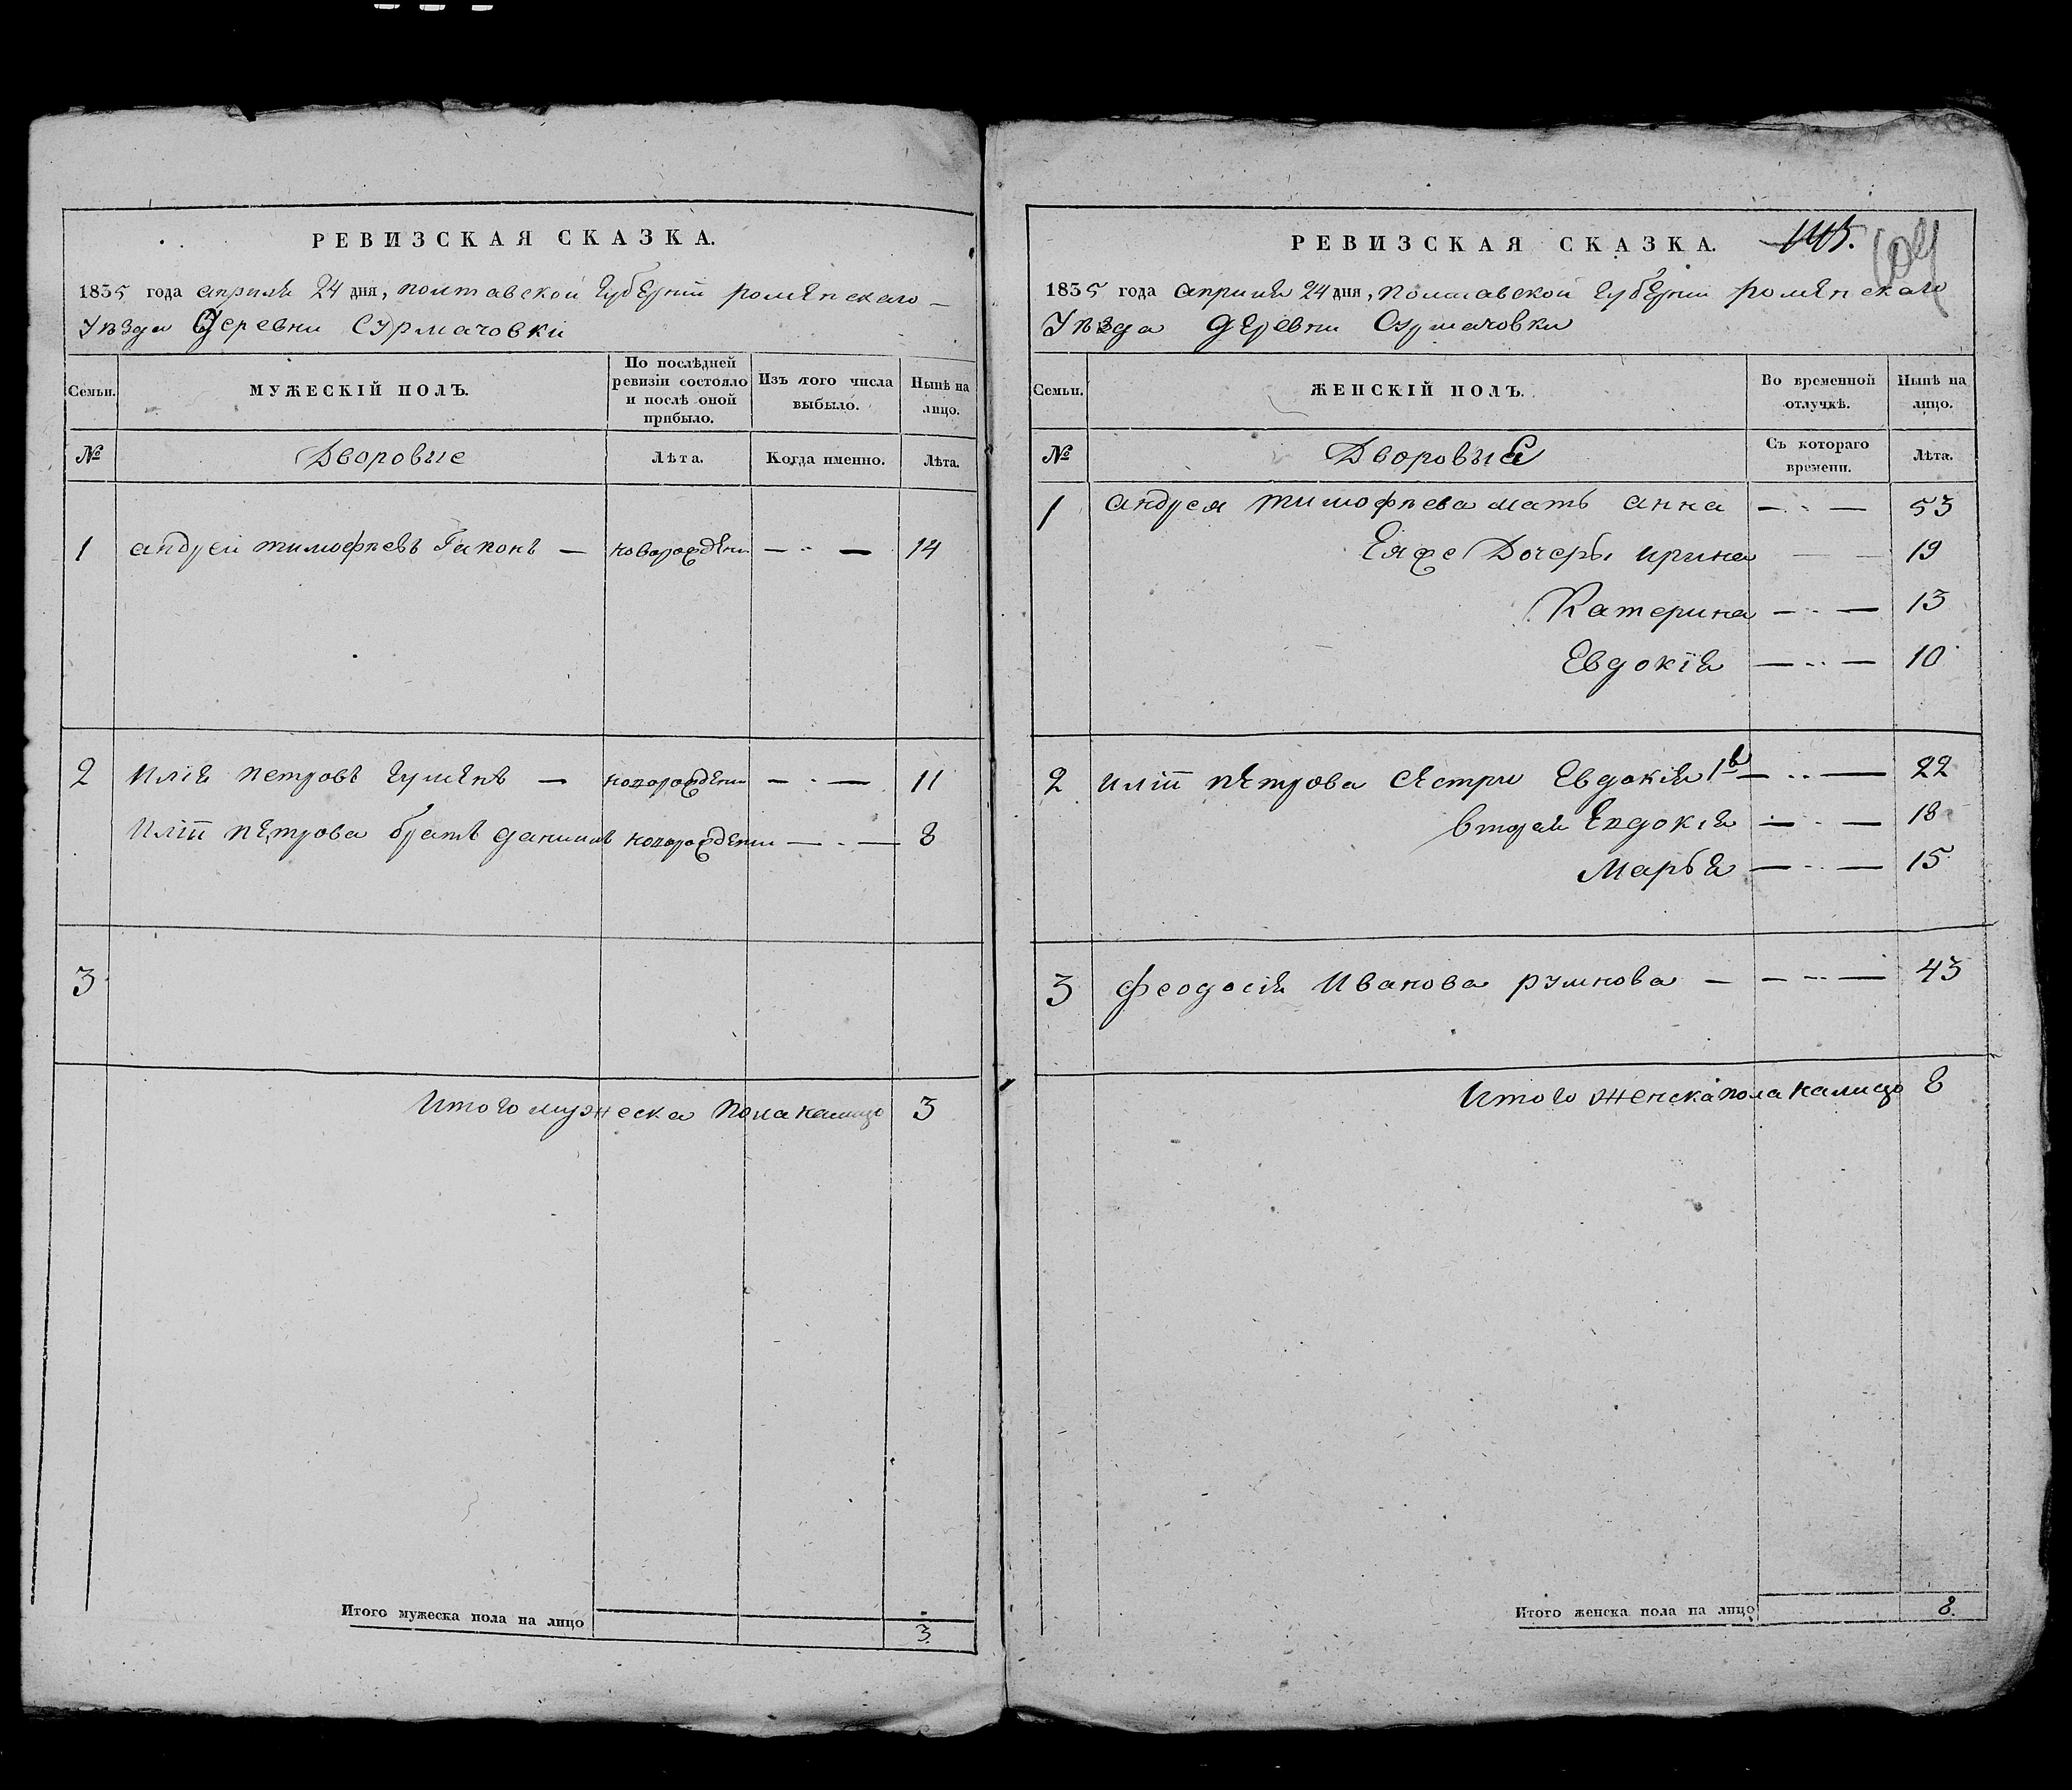 РЕВИЗСКАЯ СКАЗКА.
1835 года апреля 24 дня, полтавской губерніи роменскаго
Уѣзда Деревни Сурмачовки
Семьи.
МУЖЕСКІЙ ПОЛЪ.
По послѣдней ревизіи состояло и послѣ оной прибыло.
Изъ того числа выбыло.
Нынѣ на лицо.
№
Дворовые
Лѣта.
Когда именно.
Лѣта.
1 андрей тимофѣевъ Гапонъ — новорожденн — 14
2 Илія петровъ — новорожденн — 11
Иліи петрова братъ данилъ новорожденн — 8
3
Итого мужеска пола налицо 3
Итого мужеска пола на лицо 3.
РЕВИЗСКАЯ СКАЗКА. 145.
1835 года апреля 24 дня, полтавской губерніи роменскаго
Уѣзда деревни Сурмачовки
Семьи.
ЖЕНСКІЙ ПОЛЪ.
Во временной отлучкѣ.
Нынѣ на лицо.
№
Дворовые
Съ котораго времени.
Лѣта.
1 андрея тимофѣева мать анна — 53
Еяже Дочеры ирина — 19
Катерина — 13
Евдокія — 10
2 иліи петрова сестры Евдокія 1я — 22
вторая Евдокія — 18
Марья — 15
3 феодосія Иванова — 43
Итого женска пола налицо 8
Итого женска пола на лицо 8.